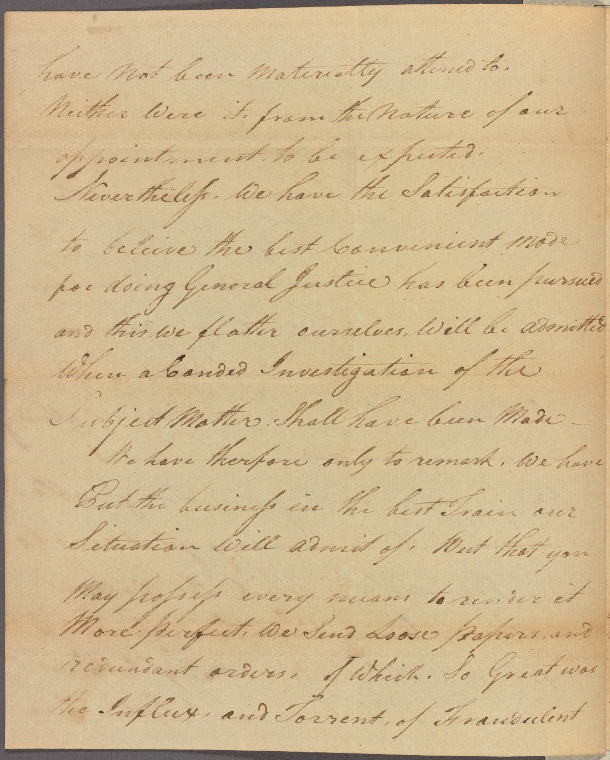 have Not been Materially attend to.
Neither Were it. from the Nature of our
appointment. to be expected.
Nevertheless. We have the Satisfaction
to beleive the best Convenient Mode
for doing General Justice has been pursued
and this we flatter ourselves, Will be admitted
When a Canded Investigation of the
Subject Matter. Shall have been Made –
We have therfore only to remark. We have
Put the business in the best Train our
Situation Will admit of. But that you
May possess every means to render it
More perfect, We Send Loose papers, and
redundant orders, of Which. So Great was
the Influx, and Torrent, of Fraudulent